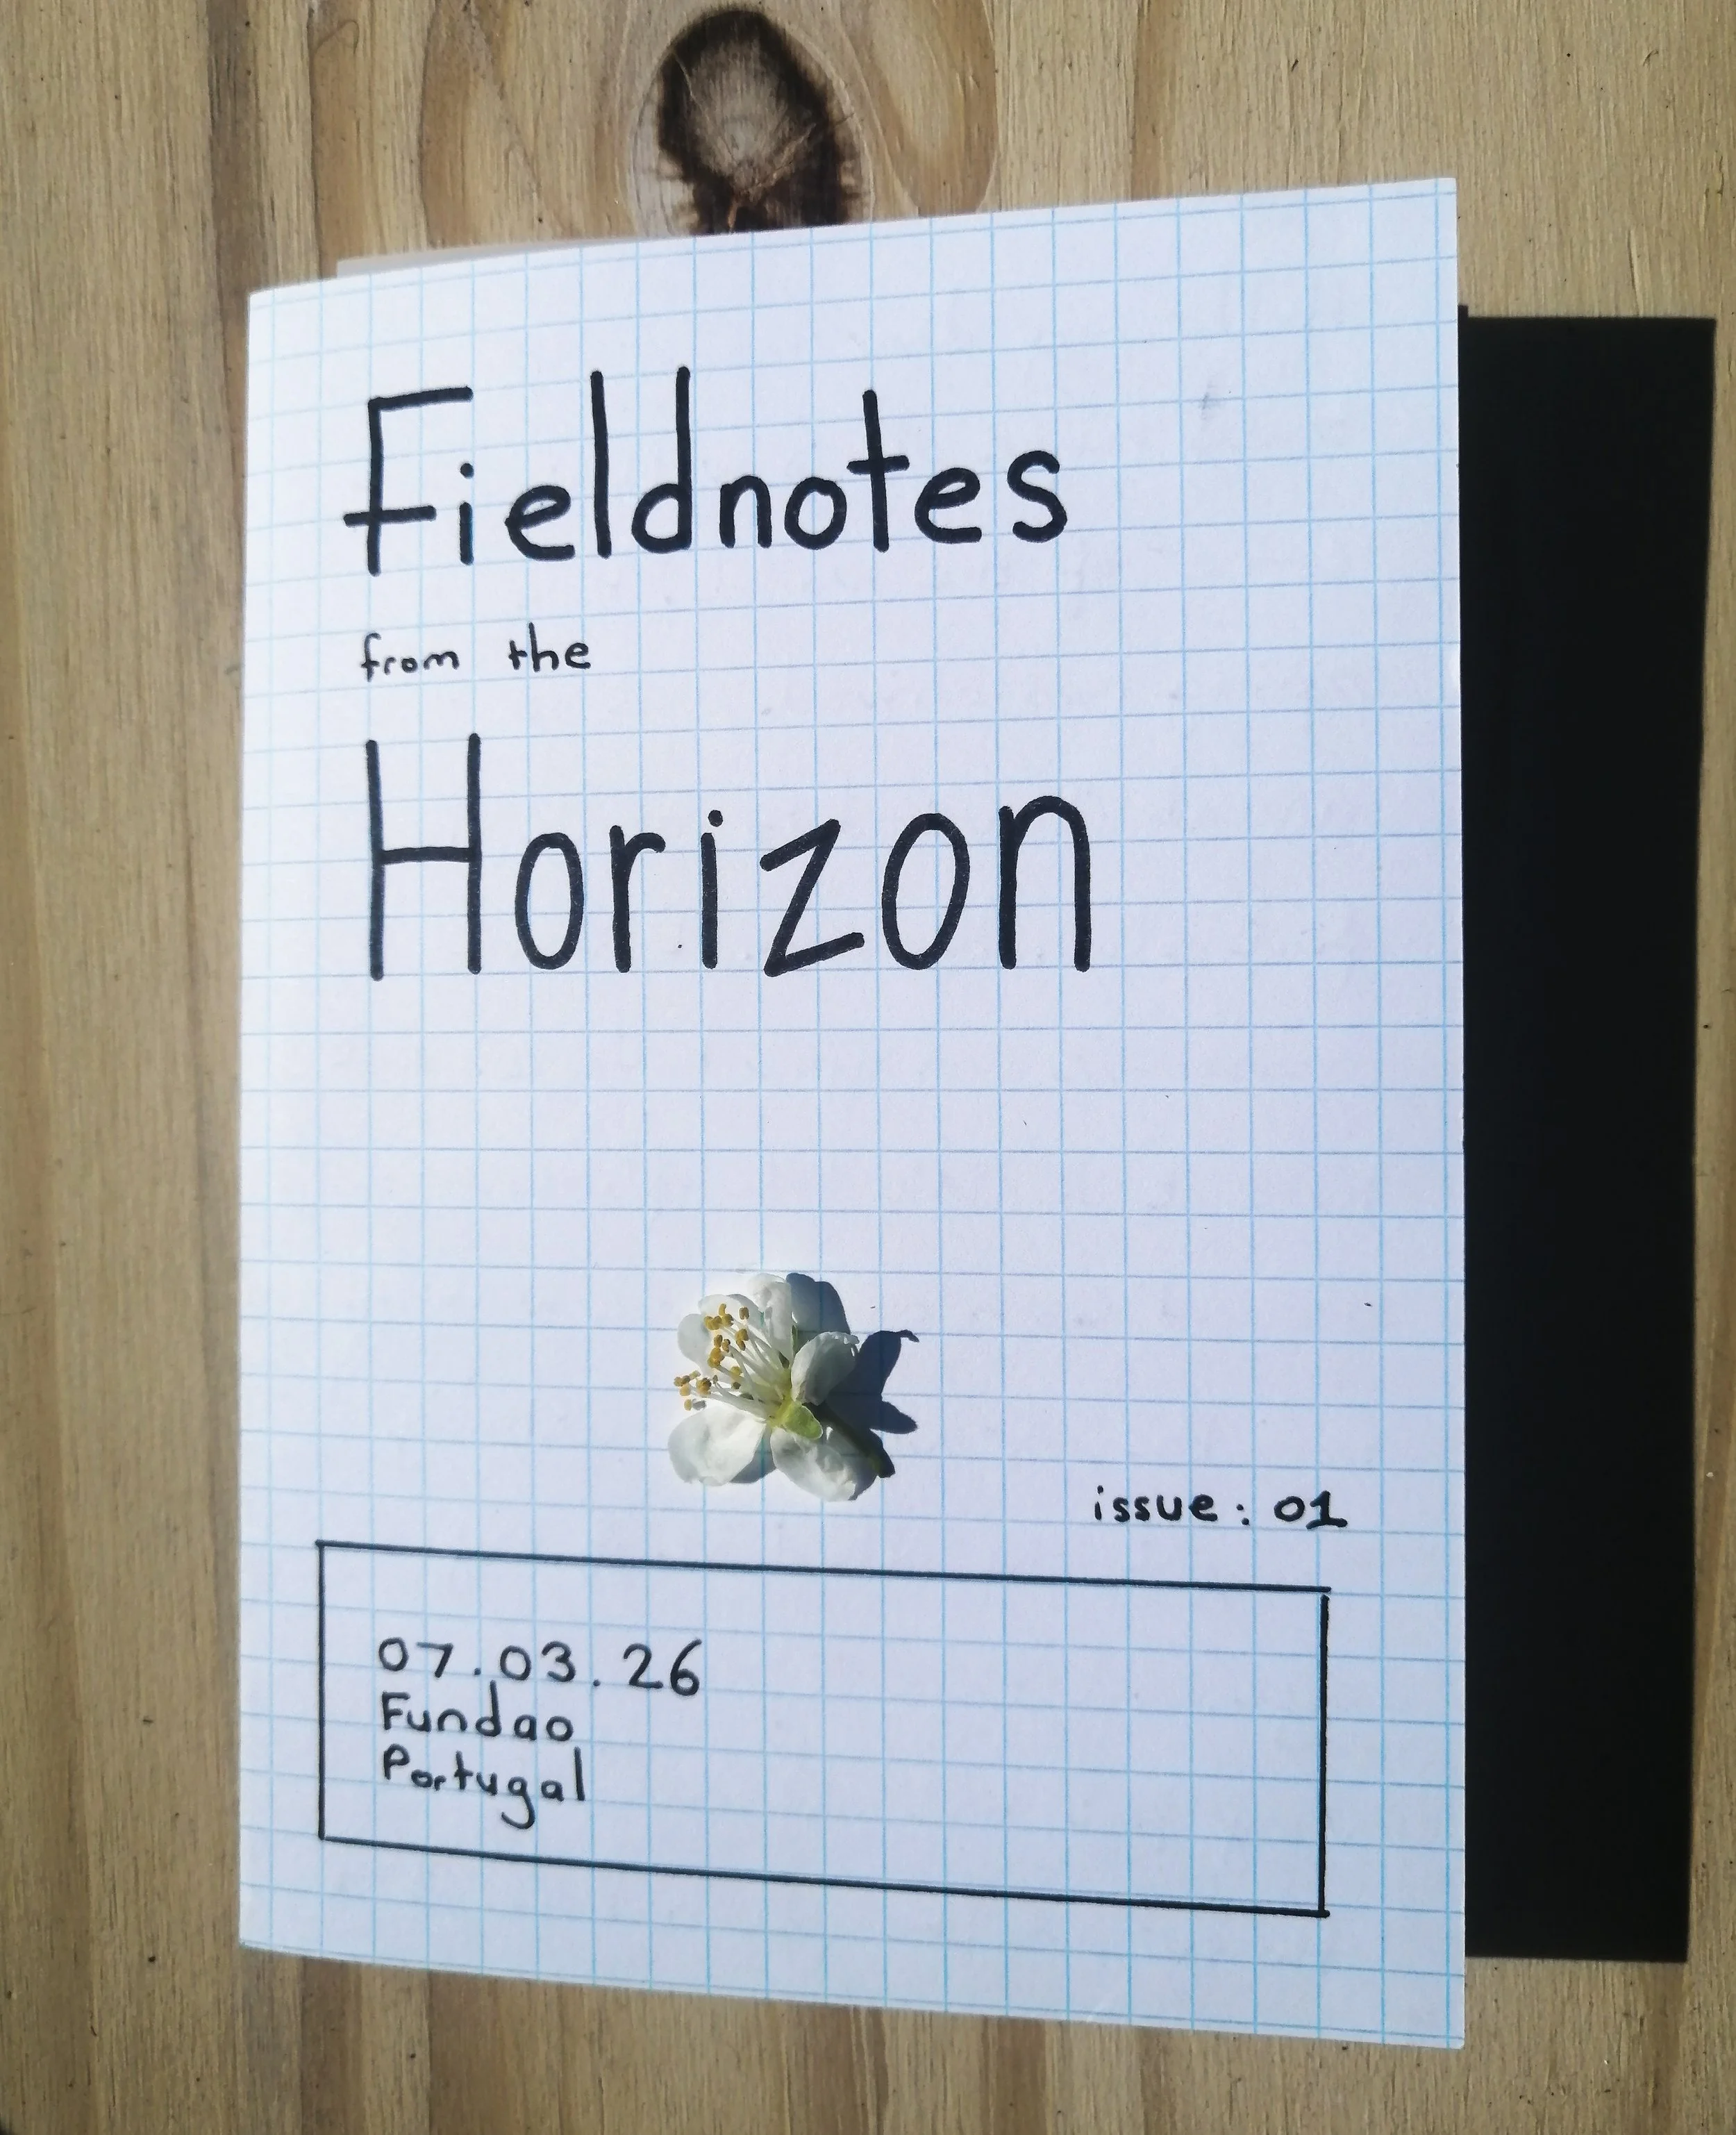 Fieldnotes
from the
Horizon
issue: 01
07.03.26
Fundao
Portugal